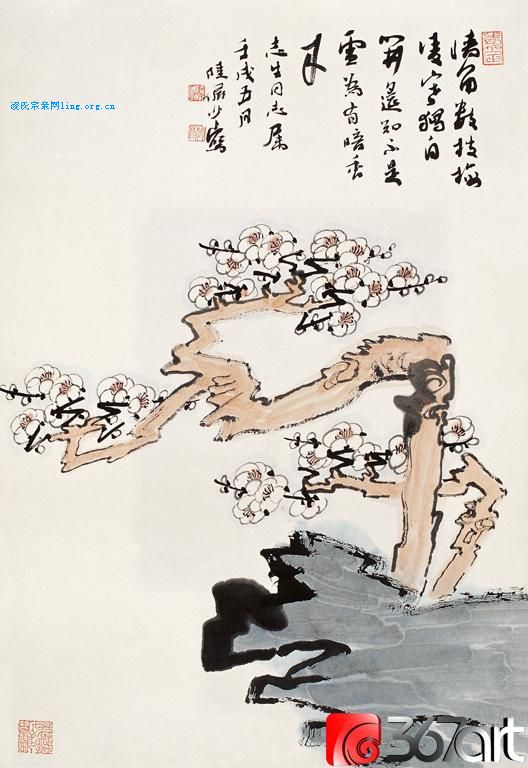 墙角數枝梅
凌寒獨自
開遥知不是
雪為有暗香
来
志生同志属
壬戌五月
陸儼少寫
凌氏宗亲网ling.org.cn
367art